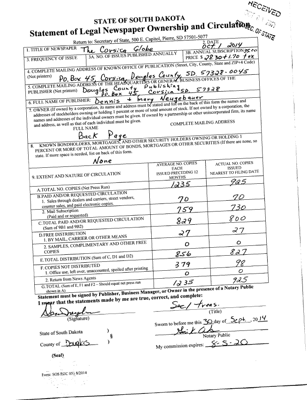 RECEIVED
STATE OF SOUTH DAKOTA
Statement of Legal Newspaper Ownership and Circulation
Return to: Secretary of State, 500 E. Capitol, Pierre, SD 57501-5077
1. TITLE OF NEWSPAPER The Corsica Globe 2. DATE Oct 1, 2014
3. FREQUENCY OF ISSUE 3A. NO. OF ISSUES PUBLISHED ANNUALLY 3B. ANNUAL SUBSCRIPTION
PRICE
4. COMPLETE MAILING ADDRESS OF KNOWN OFFICE OF PUBLICATION (Street, City, County, State and ZIP+4 Code)
(Not printers) P.O. Box 45, Corsica, Douglas County SD 57328-0045
5. COMPLETE MAILING ADDRESS OF THE BUSINESS OFFICES OF THE
PUBLISHER (Not printer) Douglas County Publishing
P.O. Box 45, Corsica SD. 57328
6. FULL NAME OF PUBLISHER: Dennis + Mary Neugebauer
7. OWNER (If owned by a corporation, its name and address must be stated and
addresses of stockholders owning or holding 1 percent or more of total amount of stock. If not owned by a corporation, the
names and addresses of the individual owners must be given. If owned by a partnership or other unincorporated firm, its name
and address, as well as that of each individual must be given.
FULL NAME COMPLETE MAILING ADDRESS
Back Page
8. KNOWN BONDHOLDERS, MORTGAGEES, AND OTHER SECURITY HOLDERS OWNING OR HOLDING 1
PERCENT OR MORE OF TOTAL AMOUNT OF BONDS, MORTGAGES OR OTHER SECURITIES (If there are none, so
state. If more space is needed, list on back of this form.
None
9. EXTENT AND NATURE OF CIRCULATION AVERAGE NO. COPIES EACH ISSUED PRECEDING 12 MONTHS ACTUAL NO. COPIES ISSUED NEAREST TO FILING DATE
A. TOTAL NO. COPIES (Net Press Run) 1235 925
B. PAID AND/OR REQUESTED CIRCULATION
1. Sales through dealers and carriers, street vendors,
counter sales, and paid electronic copies 70 70
2. Mail Subscription
(Paid and or requested) 759 730
C. TOTAL PAID AND/OR REQUESTED CIRCULATION
(Sum of 9B1 and 9B2) 829 800
D. FREE DISTRIBUTION
1. BY MAIL, CARRIER OR OTHER MEANS 27 27
2. SAMPLES, COMPLIMENTARY AND OTHER FREE
COPIES 0 0
E. TOTAL DISTRIBUTION (Sum of C, D1 and D2) 856 827
F. COPIES NOT DISTRIBUTED
1. Office use, left over, unaccounted, spoiled after printing 379 98
2. Return from News Agents 0 0
G. TOTAL (Sum of E, F1 and F2 - Should equal net press run
shown in A) 1235 925
Statement must be signed by Publisher, Business Manager, or Owner in the presence of a Notary Public
I swear that the statements made by me are true, correct, and complete:
Sec/treas.
(Signature) (Title)
State of South Dakota )
Sworn to before me this 30 day of Sept 2014
County of Douglas )
Notary Public
(Seal) My commission expires: 8-5-20